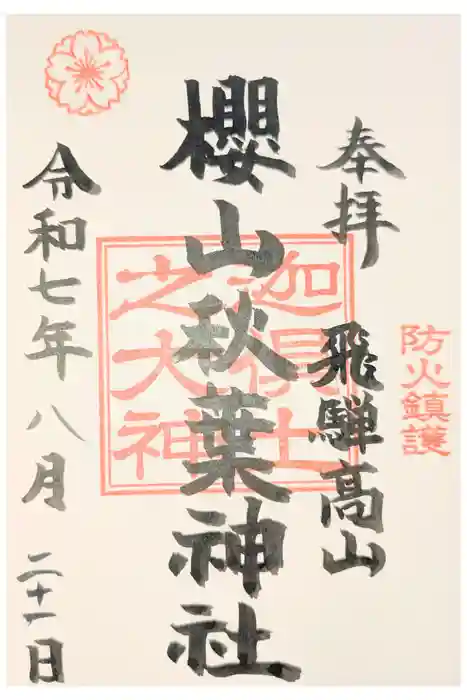 奉拝 飛騨高山
防火鎮護
櫻山秋葉神社
迦具土
之大神
令和七年八月二十一日